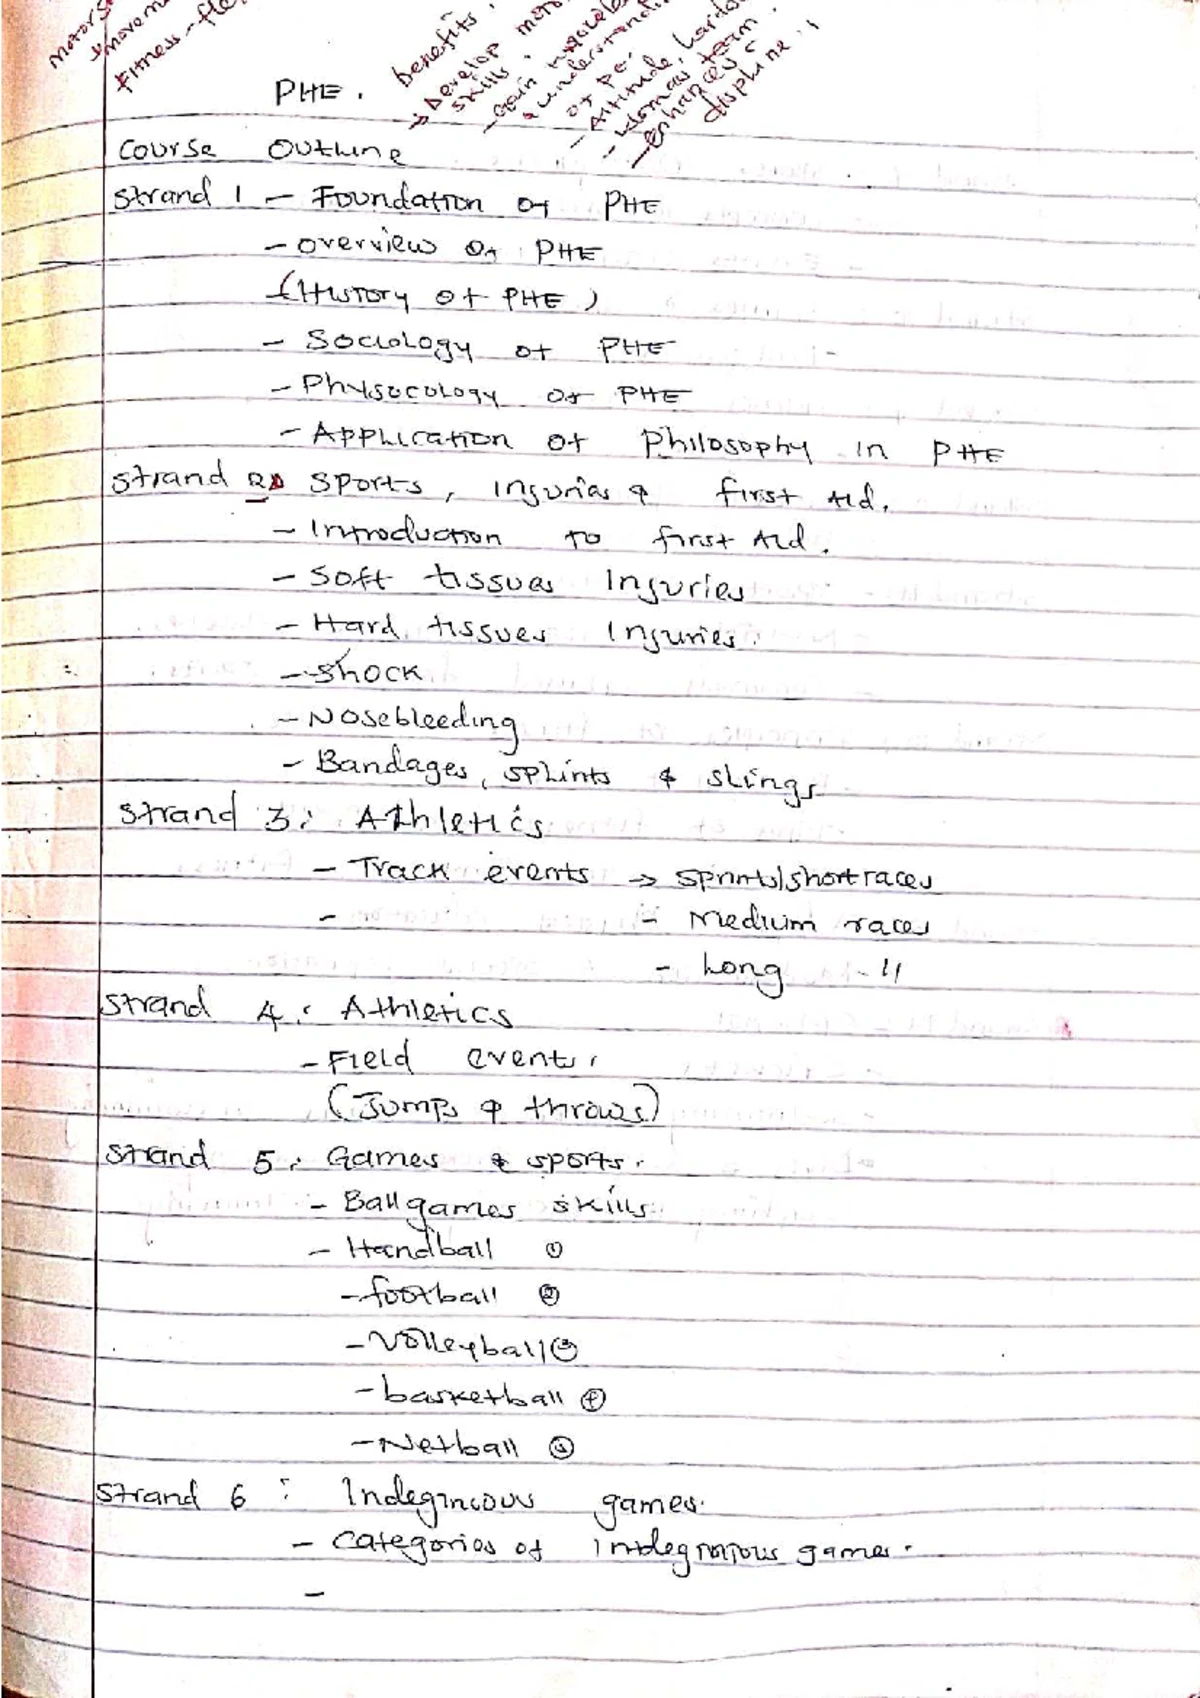 Motor s
movem
Fitness - fle
benefits.
Develop moto
skills.
- Gain knowled
& understandi
of pe.
- Attitude,
team
enhances
PHE.
Course Outline
Strand 1 - Foundation of PHE
- overview of PHE
(History of PHE)
- Sociology of PHE
- Physocology of PHE
- Application of Philosophy in PHE
Strand 2 Sports, Injuries & first Aid.
- Introduction to first Aid.
- Soft tissues Injuries
- Hard tissues Injuries.
- Shock
- Nosebleeding
- Bandages, splints & slings
Strand 3: Athletics
- Track events → sprints/short races
- - Medium races
- Long - 11
Strand 4: Athletics
- Field events.
(Jumps & throws)
Strand 5: Games & sports.
- Ball games skills
- Handball ①
- football ②
- Volleyball ③
- basketball ④
- Netball ⑤
Strand 6: Indeginous games.
- Categories of indeginous games.
-